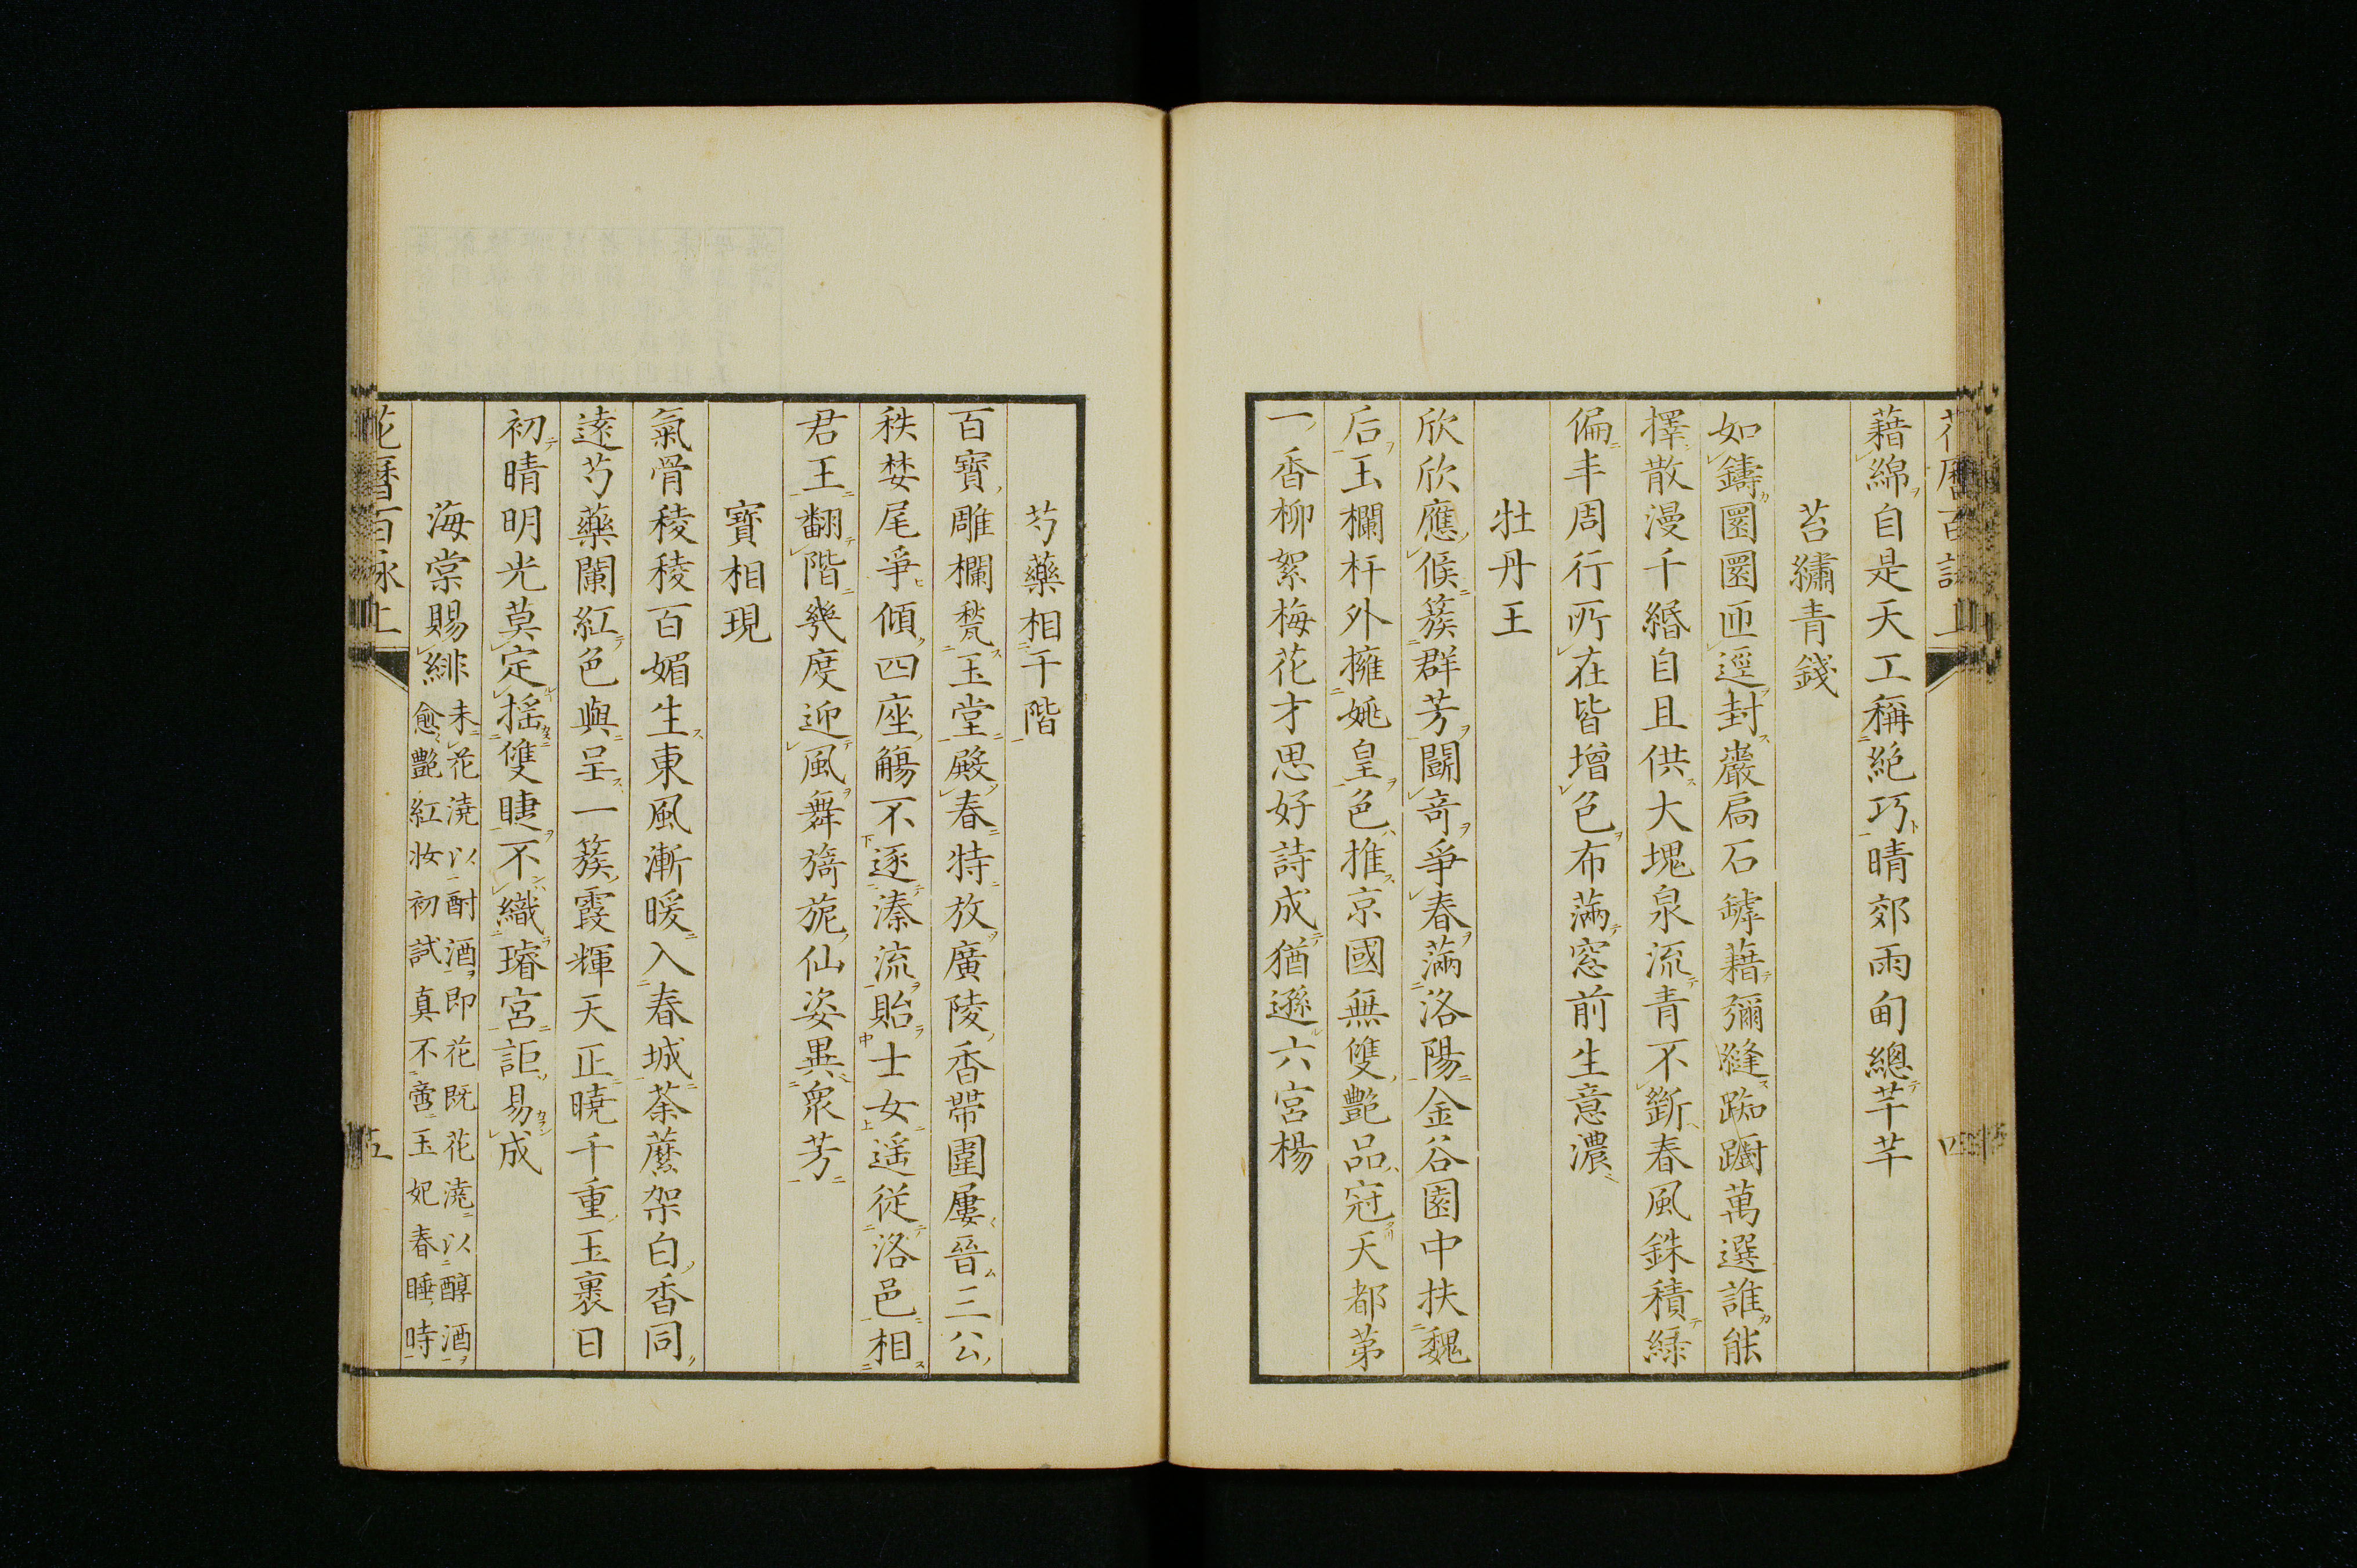 藉綿自是天工稱絶巧晴郊雨甸總芊芊
苔繡青錢
如鑄圜圜匝逕封巖扃石罅藉彌縫踟躕萬選誰能
擇散漫千緡自且供大塊泉流青不斷春風銖積緑
偏丰周行所在皆增色布滿窓前生意濃
牡丹王
欣欣應候簇群芳鬪竒爭春滿洛陽金谷園中扶魏
后玉欄杆外擁姚皇色推京國無雙艷品冠天都苐
一香柳絮梅花才思好詩成猶遜六宮楊
芍藥相于階
百寶雕欄甃玉堂殿春特放廣陵香帶圍屢晉三公
秩婪尾爭傾四座觴不逐溱流貽士女遥從洛邑相
君王翻階幾度迎風舞旖旎仙姿異衆芳
寶相現
氣骨稜稜百媚生東風漸暖入春城荼蘼架白香同
遠芍藥闌紅色與呈一簇霞輝天正曉千重玉裹日
初晴明光莫定揺雙睫不織璿宮詎易成
海棠賜緋
未花澆以酎酒即花既花澆以醇酒
愈艷紅妝初試真不啻玉妃春睡時
花暦百詠上
五
四